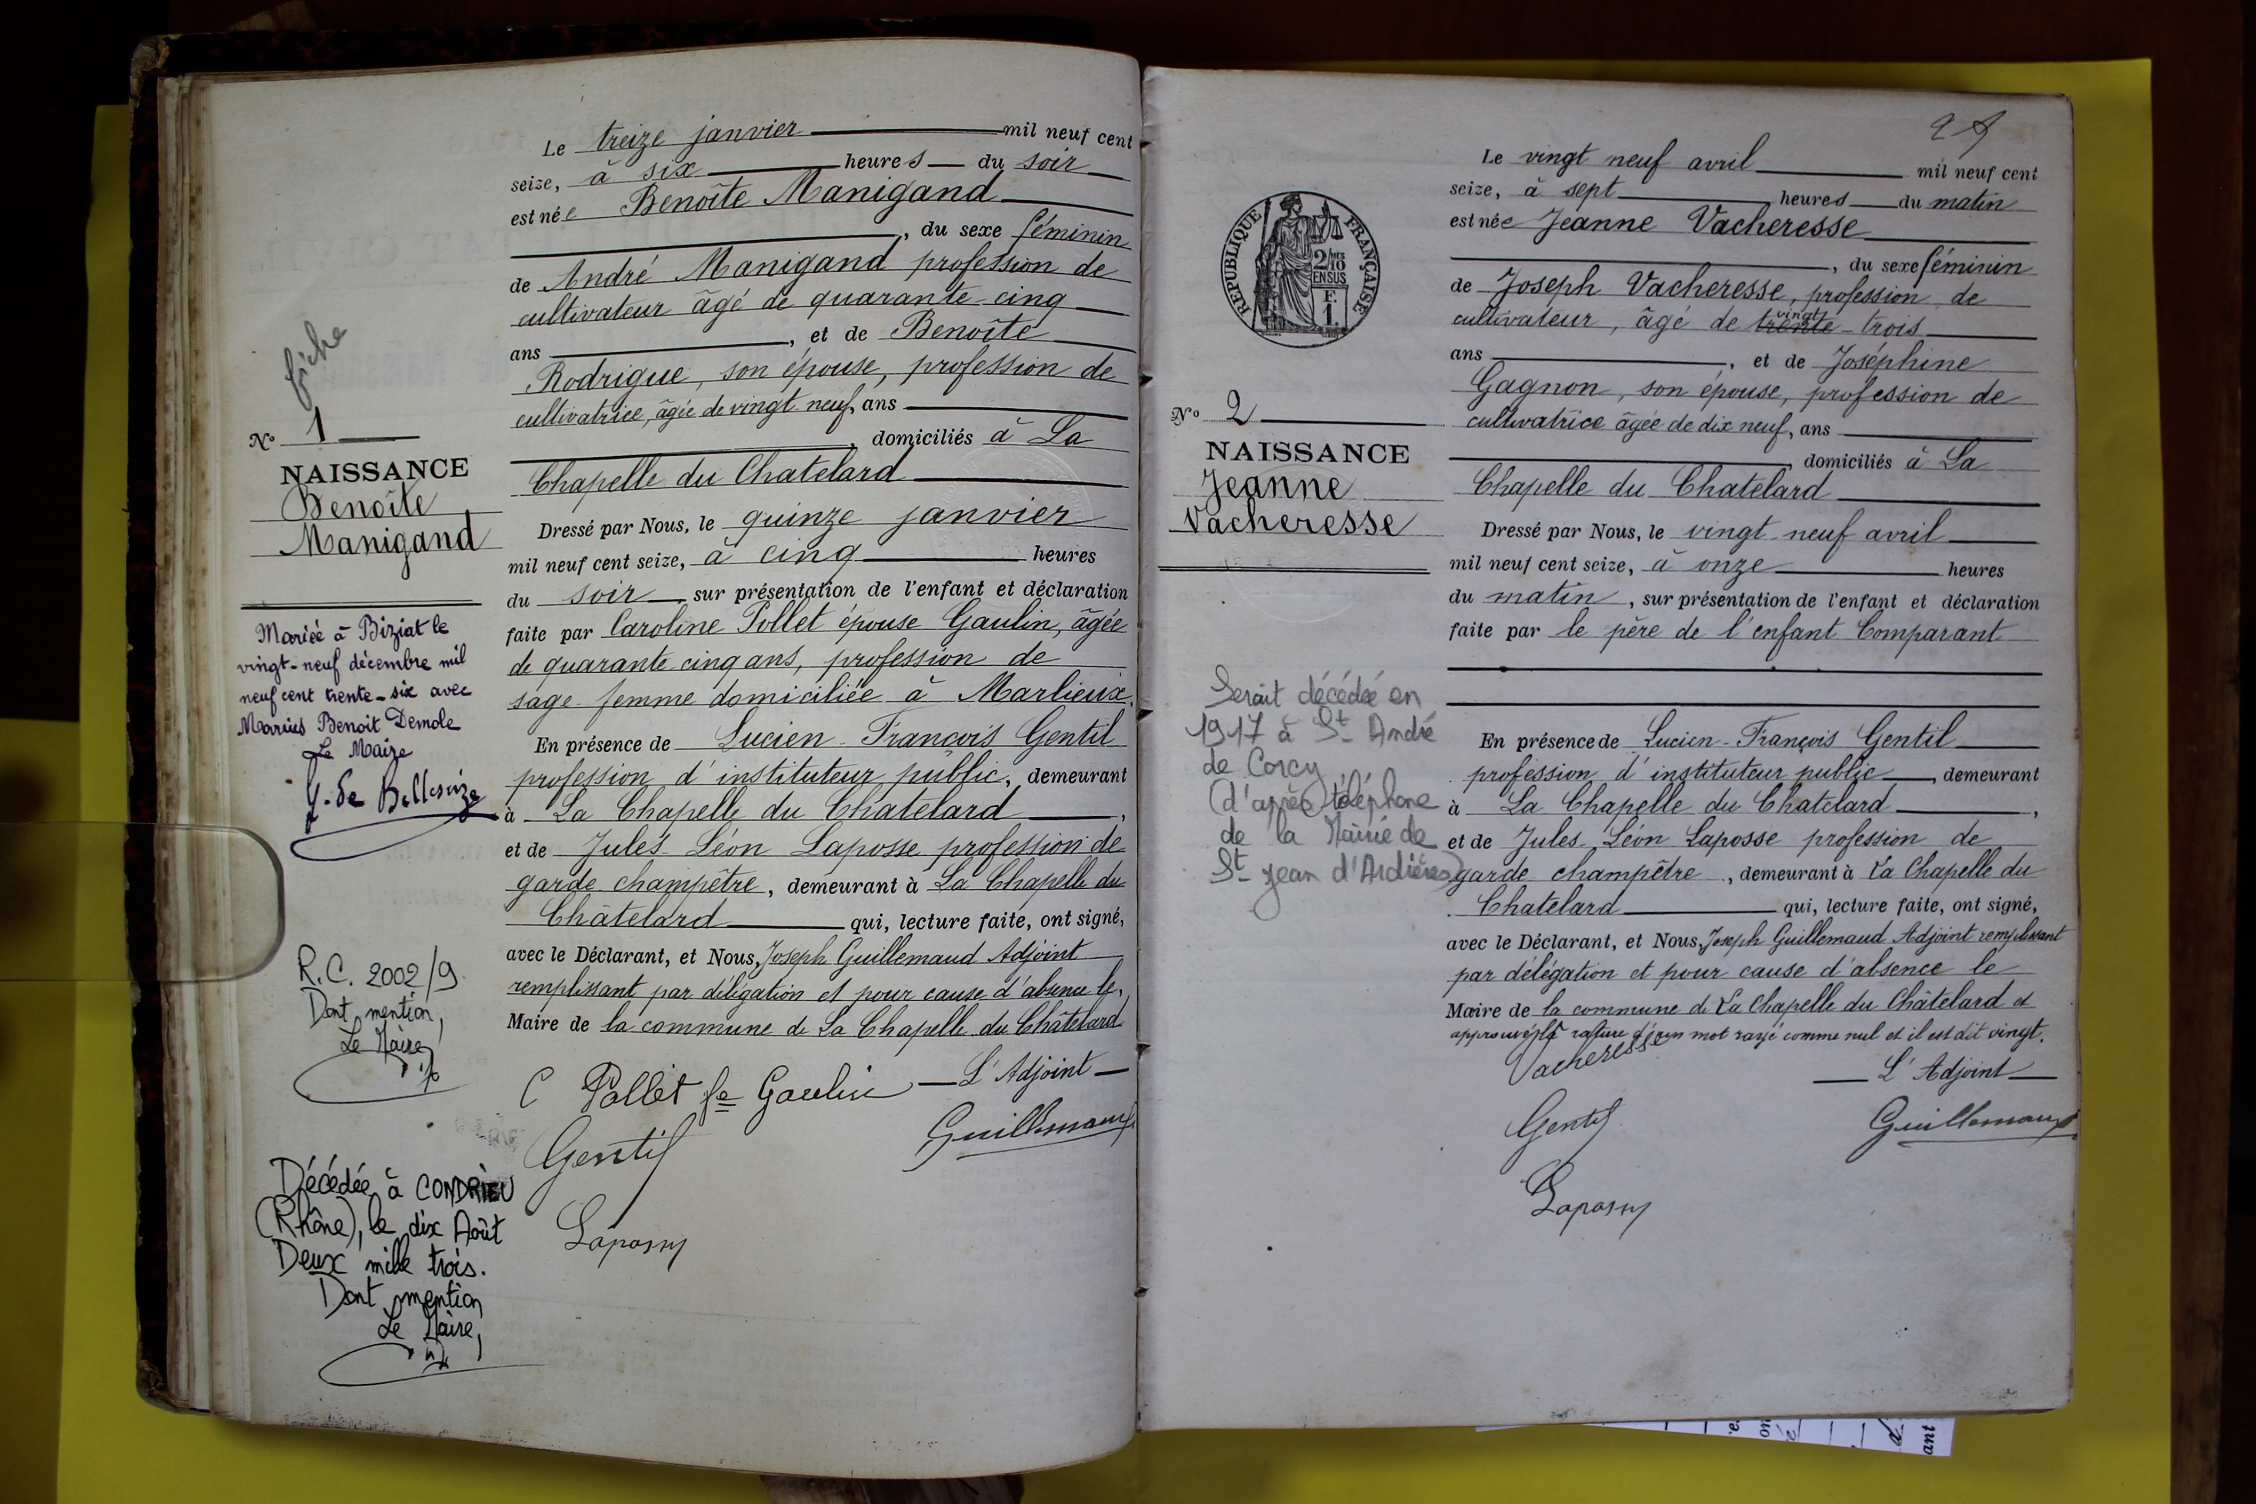 fiche
N° 1
NAISSANCE
Benoîte
Manigand
Mariée à Biziat le
vingt-neuf décembre mil
neuf cent trente-six avec
Marius Benoit Demole
Le Maire
R.C. 2002/9
Dont mention,
Le Maire,
Décédée à CONDRIEU
(Rhône), le dix Août
Deux mille trois.
Dont mention
Le Maire,
Le treize janvier mil neuf cent
seize, à six heures du soir
est née Benoîte Manigand
, du sexe féminin
de André Manigand profession de
cultivateur âgé de quarante cinq
ans , et de Benoîte
Rodrigue, son épouse, profession de
cultivatrice, âgée de vingt neuf, ans
, domiciliés à La
Chapelle du Chatelard
Dressé par Nous, le quinze janvier
mil neuf cent seize, à cinq heures
du soir, sur présentation de l'enfant et déclaration
faite par Caroline Pollet épouse Gaulin, âgée
de quarante cinq ans, profession de
sage femme domiciliée à Marlieux.
En présence de Lucien-François Gentil
profession d'instituteur public, demeurant
à La Chapelle du Chatelard ,
et de Jules Léon Laposse profession de
garde champêtre, demeurant à La Chapelle du
Châtelard qui, lecture faite, ont signé,
avec le Déclarant, et Nous, Joseph Guillemaud Adjoint
remplissant par délégation et pour cause d'absence le,
Maire de la commune de La Chapelle du Châtelard
C Pollet fe Gaulin — L'Adjoint —
Gentil Guillemaud
Laposse
2
REPUBLIQUE FRANÇAISE
2/10
EN SUS
F.
1.
N° 2
NAISSANCE
Jeanne
Vacheresse
Serait décédée en
1917 à St André
de Corcy
(d'après téléphone
de la Mairie de
St Jean d'Ardières)
Le vingt neuf avril mil neuf cent
seize, à sept heures du matin
est née Jeanne Vacheresse
, du sexe féminin
de Joseph Vacheresse, profession de
vingt
cultivateur, âgé de trente-trois
ans , et de Joséphine
Gagnon, son épouse, profession de
cultivatrice âgée de dix neuf, ans
, domiciliés à La
Chapelle du Chatelard
Dressé par Nous, le vingt-neuf avril
mil neuf cent seize, à onze heures
du matin, sur présentation de l'enfant et déclaration
faite par le père de l'enfant Comparant
En présence de Lucien-François Gentil
profession d'instituteur public, demeurant
à La Chapelle du Chatelard ,
et de Jules Léon Laposse profession de
garde champêtre, demeurant à La Chapelle du
Chatelard qui, lecture faite, ont signé,
avec le Déclarant, et Nous, Joseph Guillemaud Adjoint remplissant
par délégation et pour cause d'absence le
Maire de la commune de La Chapelle du Châtelard et
mot rayé comme nul et il est dit vingt.
Vacheresse
— L'Adjoint —
Gentil Guillemaud
Laposse
ant